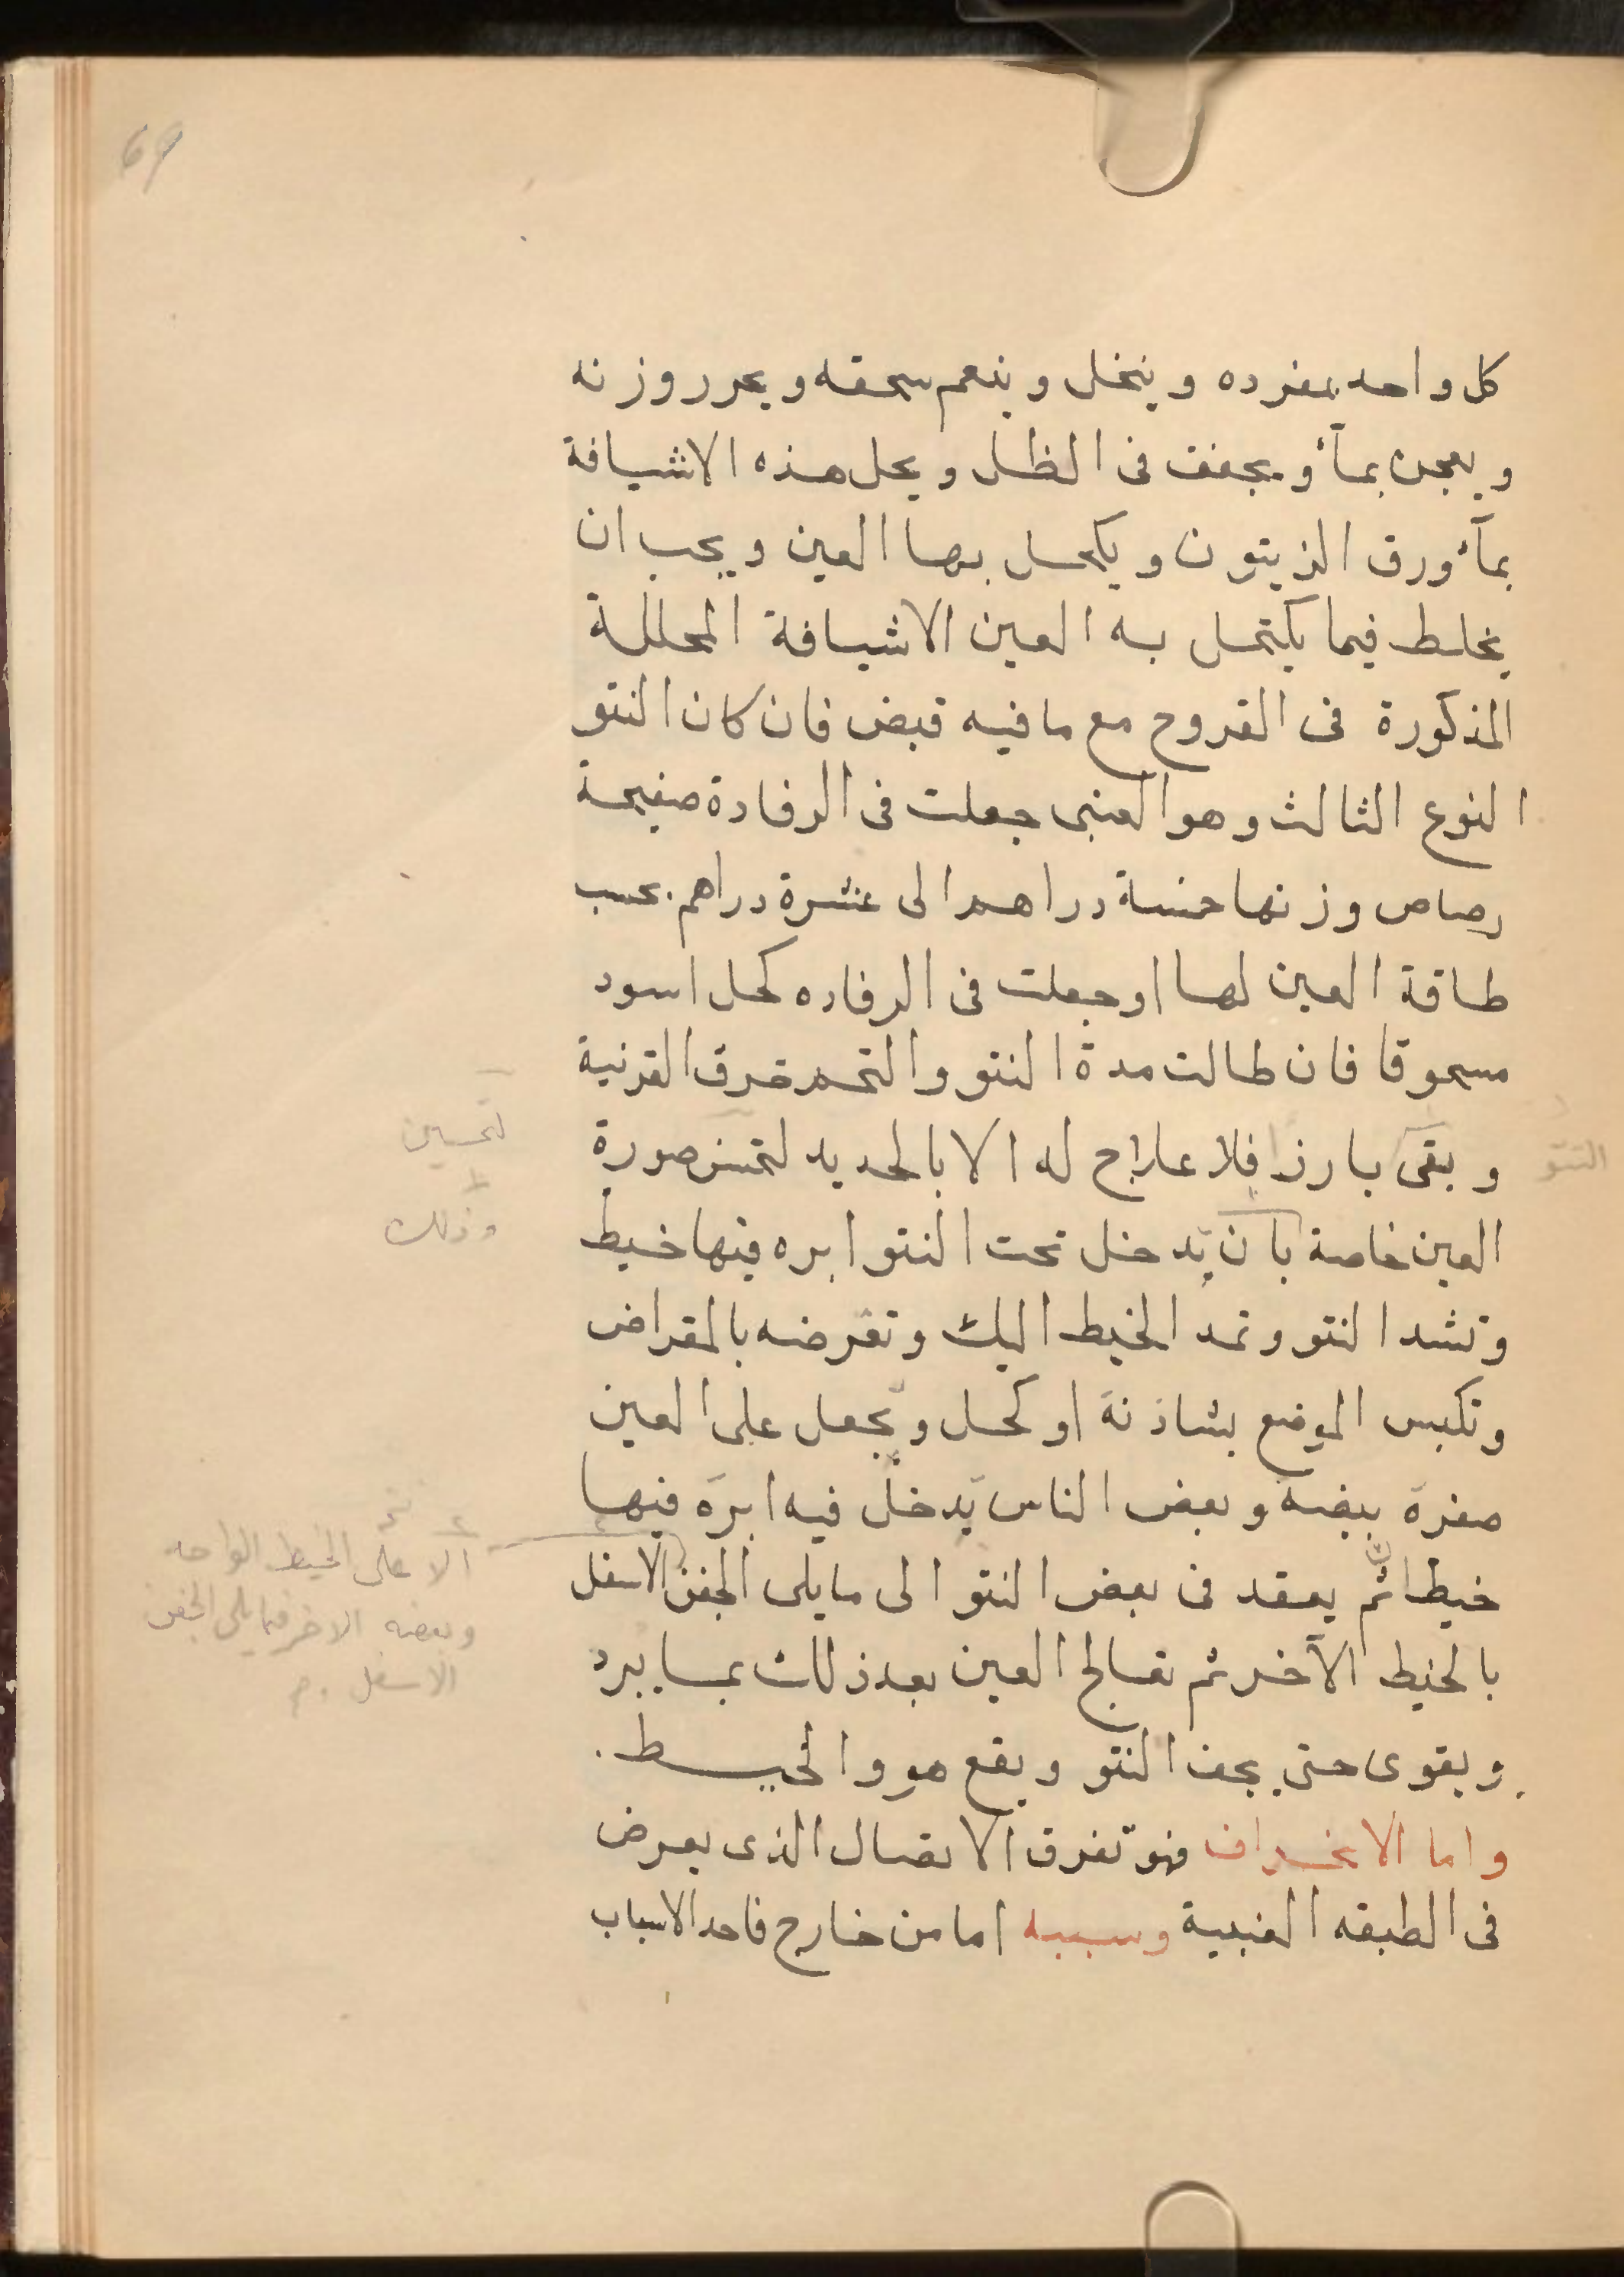 69
كل واحد بمفرده وينخل وينعم سحقه ويحرر وزنه
ويعجن بمآء ويجفف فى الظل ويحل هذه الاشيافة
بمآء ورق الزيتون ويكحل بها العين ويجب ان
يخلط فيما يكتحل به العين الاشيافة المحللة
المذكورة فى القروح مع ما فيه قبض فان كان النتو
النوع الثالث وهو العنبى جعلت فى الرفادة صفيحة
رصاص وزنها خمسة دراهم الى عشرة دراهم بحسب
طاقة العين لها او جعلت فى الرفاده كحل اسود
مسحوقا فان طالت مدة النتو والتحم خرق القرنية
وبقى بارزا فلا علاج له الا بالحديد لتحسن صورة
النتو
لتحسين
العين خاصة بان يدخل تحت النتو ابره فيها خيط
وذلك
وتشد النتو وتمد الخيط اليك وتقرضه بالمقراض
وتكبس الموضع بشاذنة او كحل وتجعل على العين
صفرة بيضه وبعض الناس يدخل فيه ابرة فيها
خيطان ثم يعقد فى بعض النتو الى ما يلى الجفن الاسفل
الاعلى الخيط الواحد
وبعضه الاخر فما يلى الجفن
الاسفل
بالخيط الآخر ثم تعالج العين بعد ذلك بما يبرد
ويقوى حتى يجف النتو ويقع هو والخيط.
واما الانخراق فهو تفرق الاتصال الذى يعرض
فى الطبقه العنبية وسببه اما من خارج فاحد الاسباب